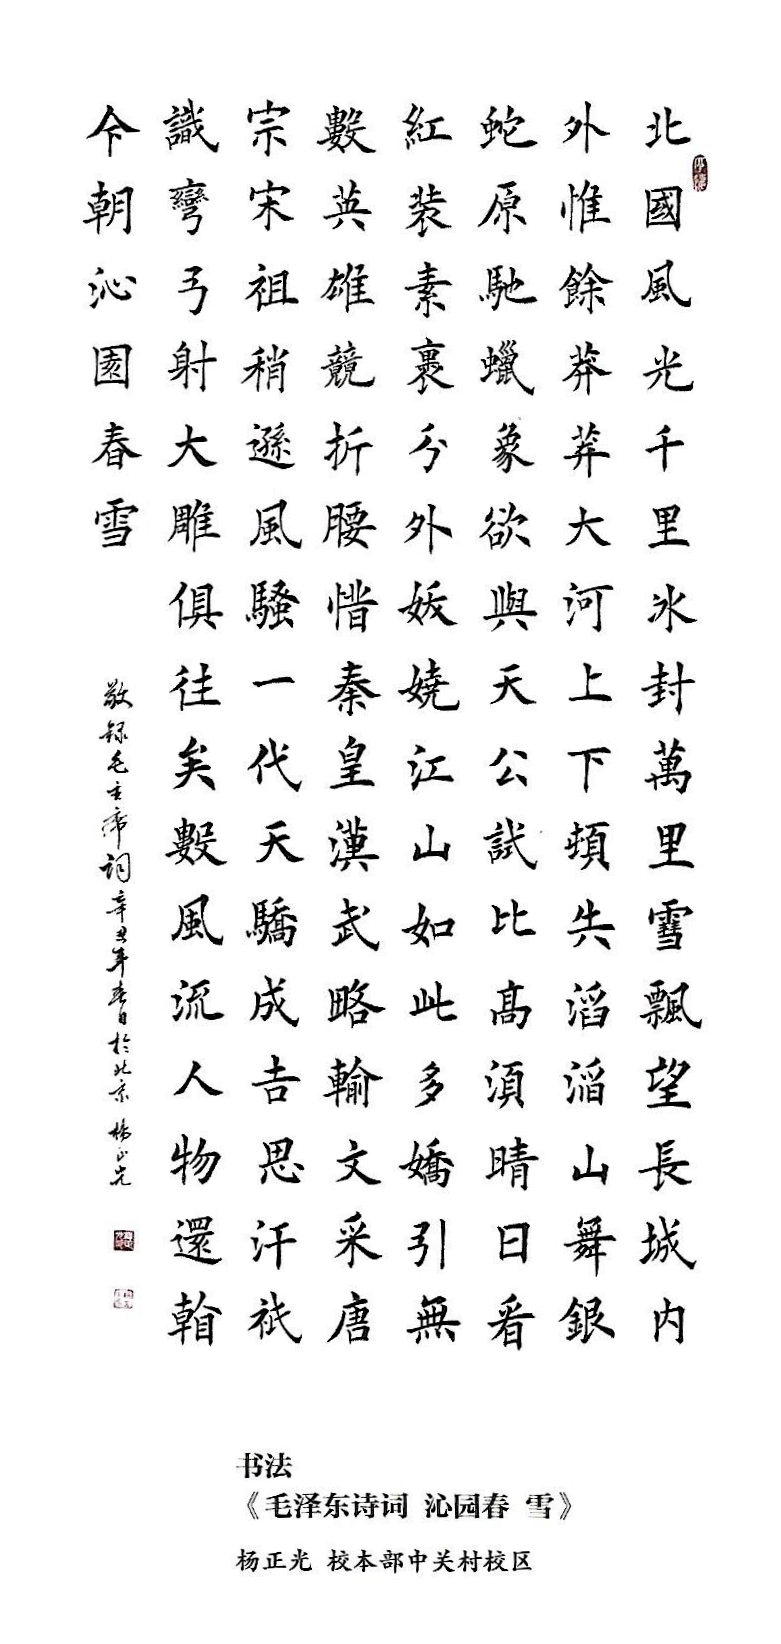 北國風光千里冰封萬里雪飄望長城内
外惟餘莽莽大河上下頓失滔滔山舞銀
蛇原馳蠟象欲與天公試比高須晴日看
紅装素裹分外妖嬈江山如此多嬌引無
數英雄競折腰惜秦皇漢武略輸文采唐
宗宋祖稍遜風騷一代天驕成吉思汗祇
識彎弓射大雕俱往矣數風流人物還看
今朝沁園春雪
敬録毛主席詞辛丑年春日於北京楊正光
书法
《毛泽东诗词 沁园春 雪》
杨正光 校本部中关村校区